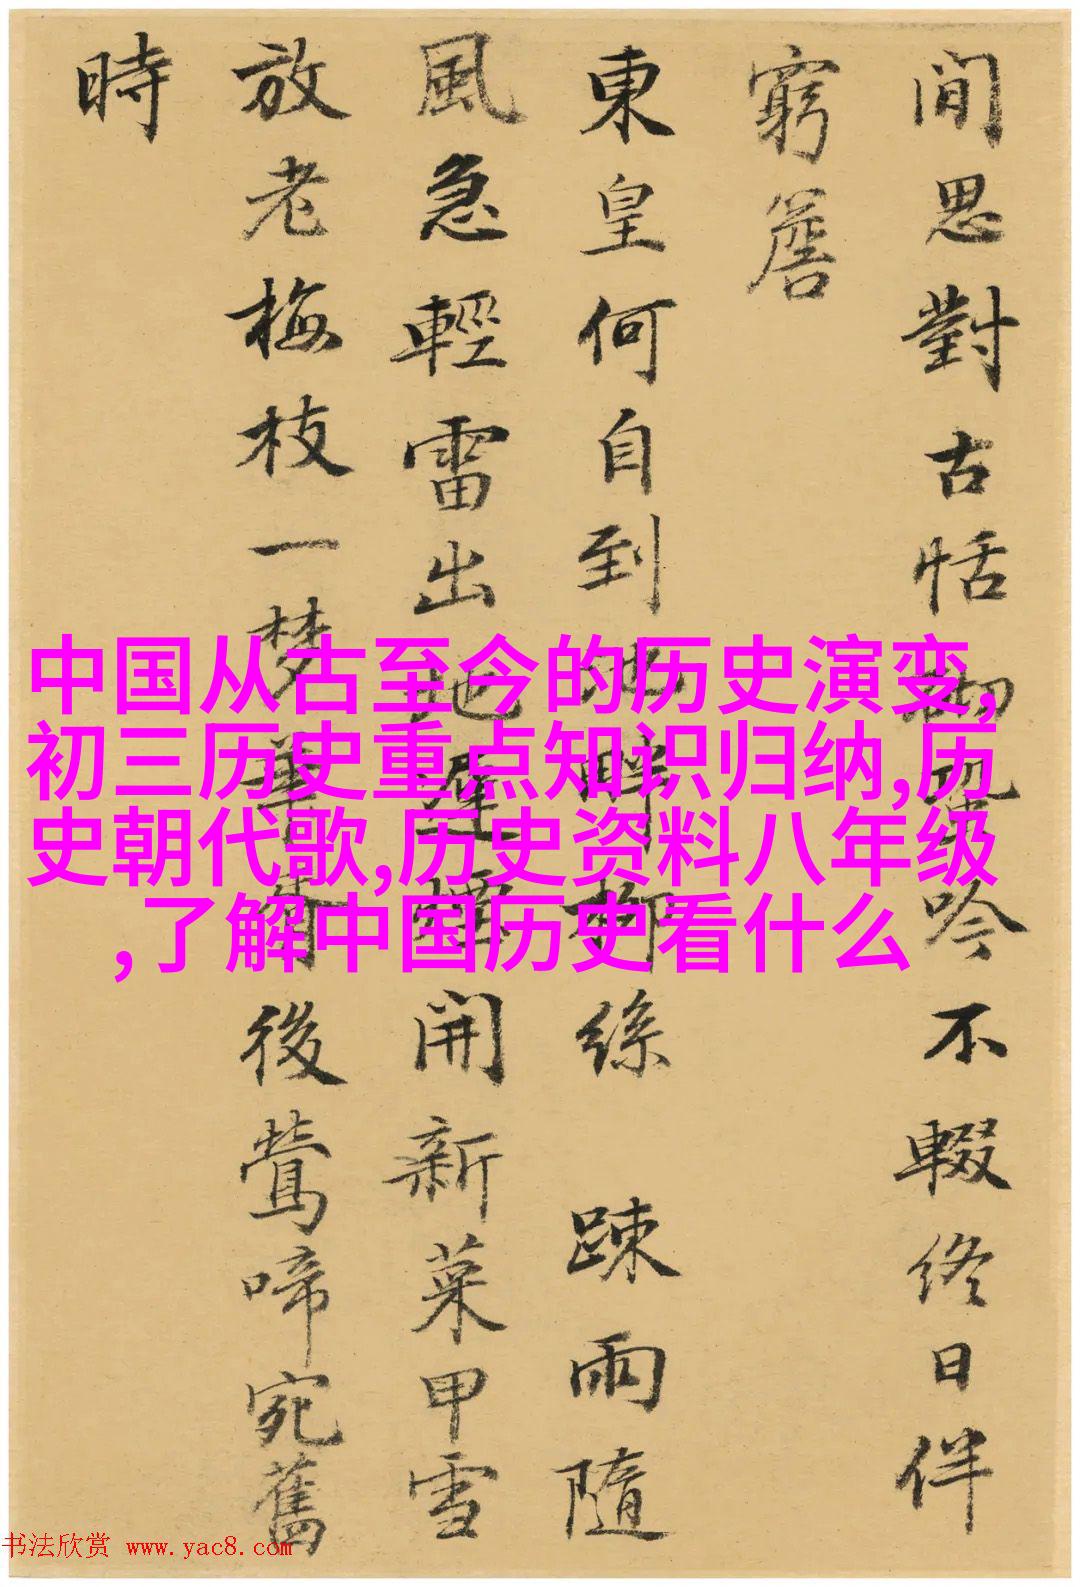 間思對古恬 吟不輟終日伴
窮簷
東皇何自到 畔柳絲 疎雨隨
風急輕雷出地遲 開新菜甲雪
放老梅枝一梦 後鶯啼宛舊
時
中国从古至今的历史演变,
初三历史重点知识归纳,历
史朝代歌,历史资料八年级
,了解中国历史看什么
书法欣赏 www.yac8.com